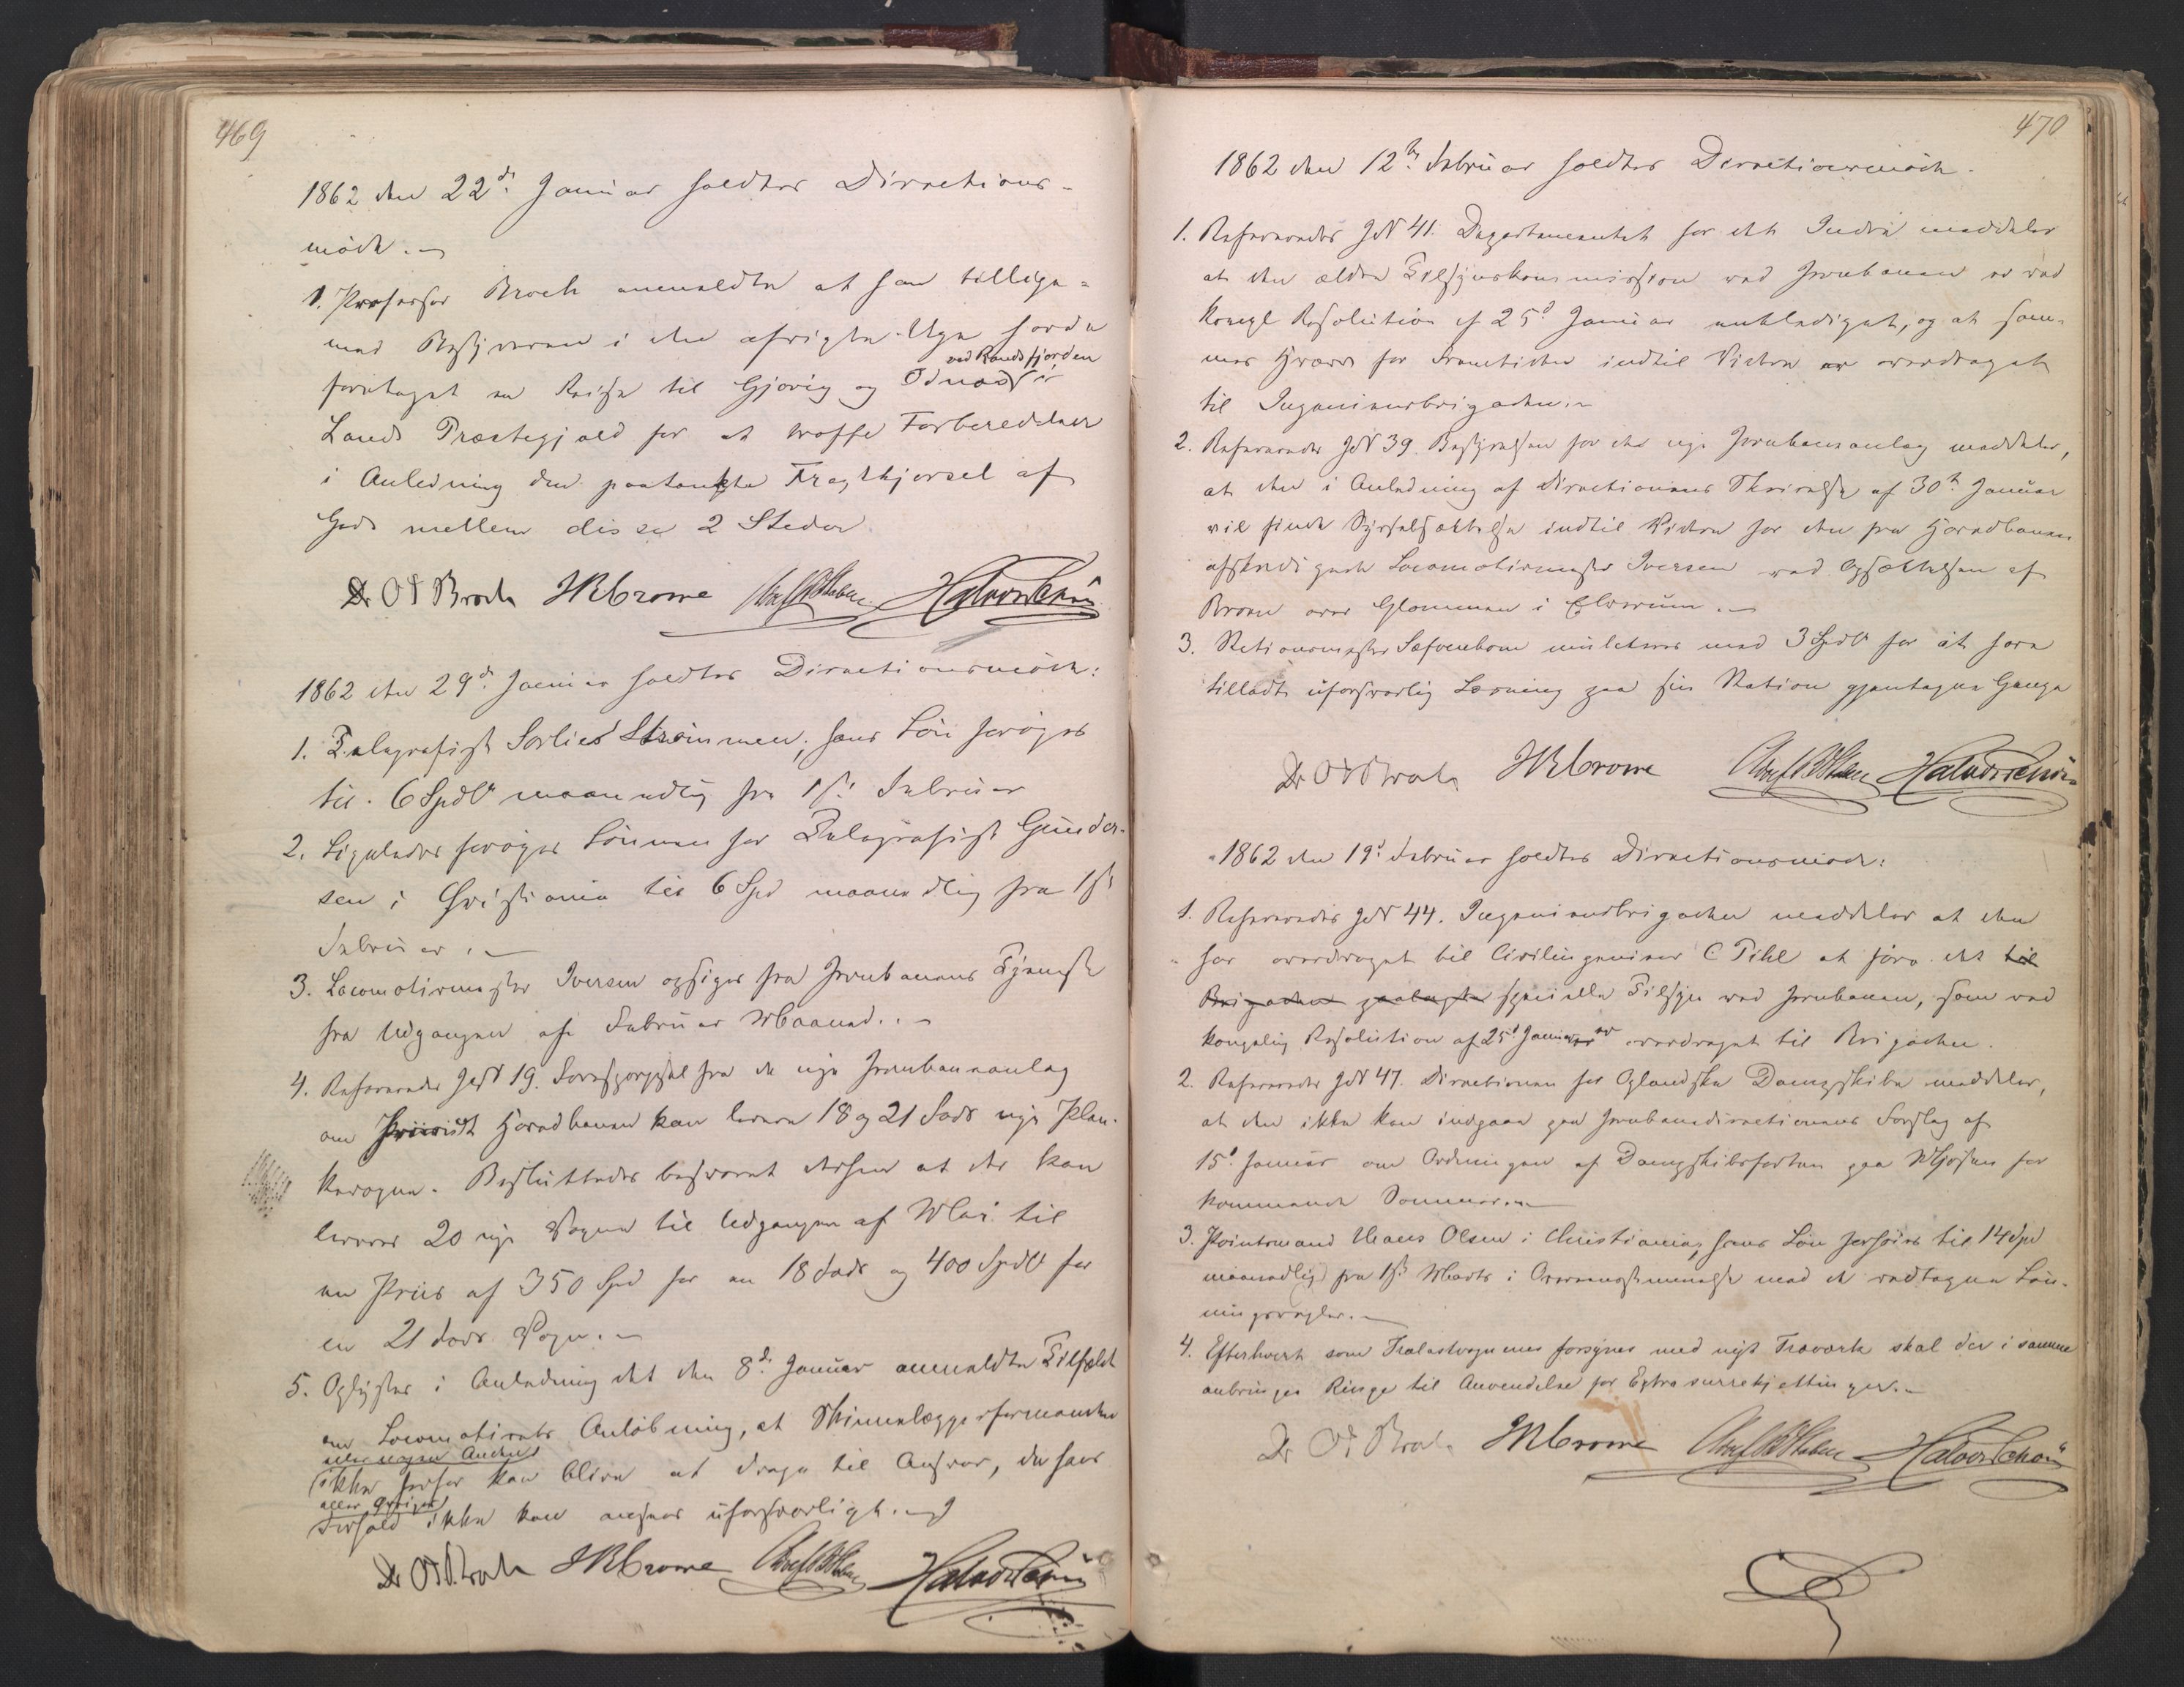 469
1862 den 22de Januar holdtes Directions-
möde.
1. Professor Broch anmeldte at han tillige-
med Bestyreren i den afvigte Uge havde
foretaget en Reise til Gjøvig og Odnæs i
ved Randsfjorden
Lands Præstegjæld for at træffe Forberedelser
i Anledning den paatænkte Fragtkjørsel af
Gods mellem disse 2 Steder
Dr OJ Broch JRCrowe Halvor Schou
1862 den 29de Januar holdtes Directionsmöde:
1. Telegrafist Sørlies Strømmen, hans Lön forøges
til 6 Spdlr maanedlig fra 1ste Februar
2. Ligeledes forøges Lönnen for Telegrafist Gunder-
sen i Christiania til 6 Spd maanedlig fra 1ste
Februar.
3. Locomotivmester Iversen opsiges fra Jernbanens Tjeneste
fra Udgangen af Februar Maaned.
4. Refereredes JN 19. Forespörgsel fra de nye Jernbaneanlæg
om Hovedbanen kan levere 18 og 21 Fods nye Plan-
kevogne. Besluttedes besvaret derhen at der kan
leveres 20 nye Vogne til Udgangen af Mai til
en Priis af 350 Spd for en 18 Fods og 400 Spdlr for
en 21 Fods Vogn.
5. Oplystes i Anledning det den 8de Januar anmeldte Tilfælde
om Locomotivets Anlöbning, at Skinnelæggerformanden
eller nogen Anden
ikke herfor kan blive at drage til Ansvar, da hans
eller övriges
Forhold ikke kan ansees uforsvarligt.
Dr OJ Broch JRCrowe Halvor Schou
470
1862 den 12te Februar holdtes Directionsmöde.
1. Refereredes JN 41. Departementet for det Indre meddeler
at den ældre Tilsynskommission ved Jernbanen er ved
Kongl Resolution af 25d Januar entlediget, og at sam-
mes Hverv for Fremtiden indtil Videre er overdraget
til Ingenieurbrigaden.
2. Refereredes JN 39. Bestyrelsen for de nye Jernbaneanlæg meddeler,
at den i Anledning af Directionens Skrivelse af 30te Januar
vil finde Sysselsættelse indtil Videre for den fra Hovedbanen
afskedigede Locomotivmester Iversen ved Opsættelsen af
Broen over Glommen i Elverum.
3. Stationsmester Sæfvenbom mulcteres med 3 Spdlr for at have
tilladt uforsvarlig Læsning paa sin Station gjentagne Gange
Dr OJ Broch JRCrowe Halvor Schou
1862 den 19d Februar holdtes Directionsmöde:
1. Refereredes JN 44. Ingenieurbrigaden meddeler at den
har overdraget til Civilingeniør C Pihl at føre det til
Brigaden paalagte specielle Tilsyn ved Jernbanen, som ved
kongelig Resolution af 25d Januar er overdraget til Brigaden.
2. Refereredes JN 47. Directionen for Oplandske Dampskibe meddeler,
at den ikke kan indgaae paa Jernbanedirectionens Forslag af
15d Januar om Ordningen af Dampskibsfarten paa Mjøsen for
kommende Sommer.
3. Pointsmand Hans Olsen i Christiania, hans Lön forhöies til 14 Spd
maanedlig fra 1ste Marts i Overeensstemmelse med de vedtagne Løn-
ningsregler.
4. Efterhvert som Trælastvognene forsynes med nyt Træværk skal der i samme
anbringes Ringe til Anvendelse for Extra surrekjettinger.
Dr OJ Broch JRCrowe Halvor Schou